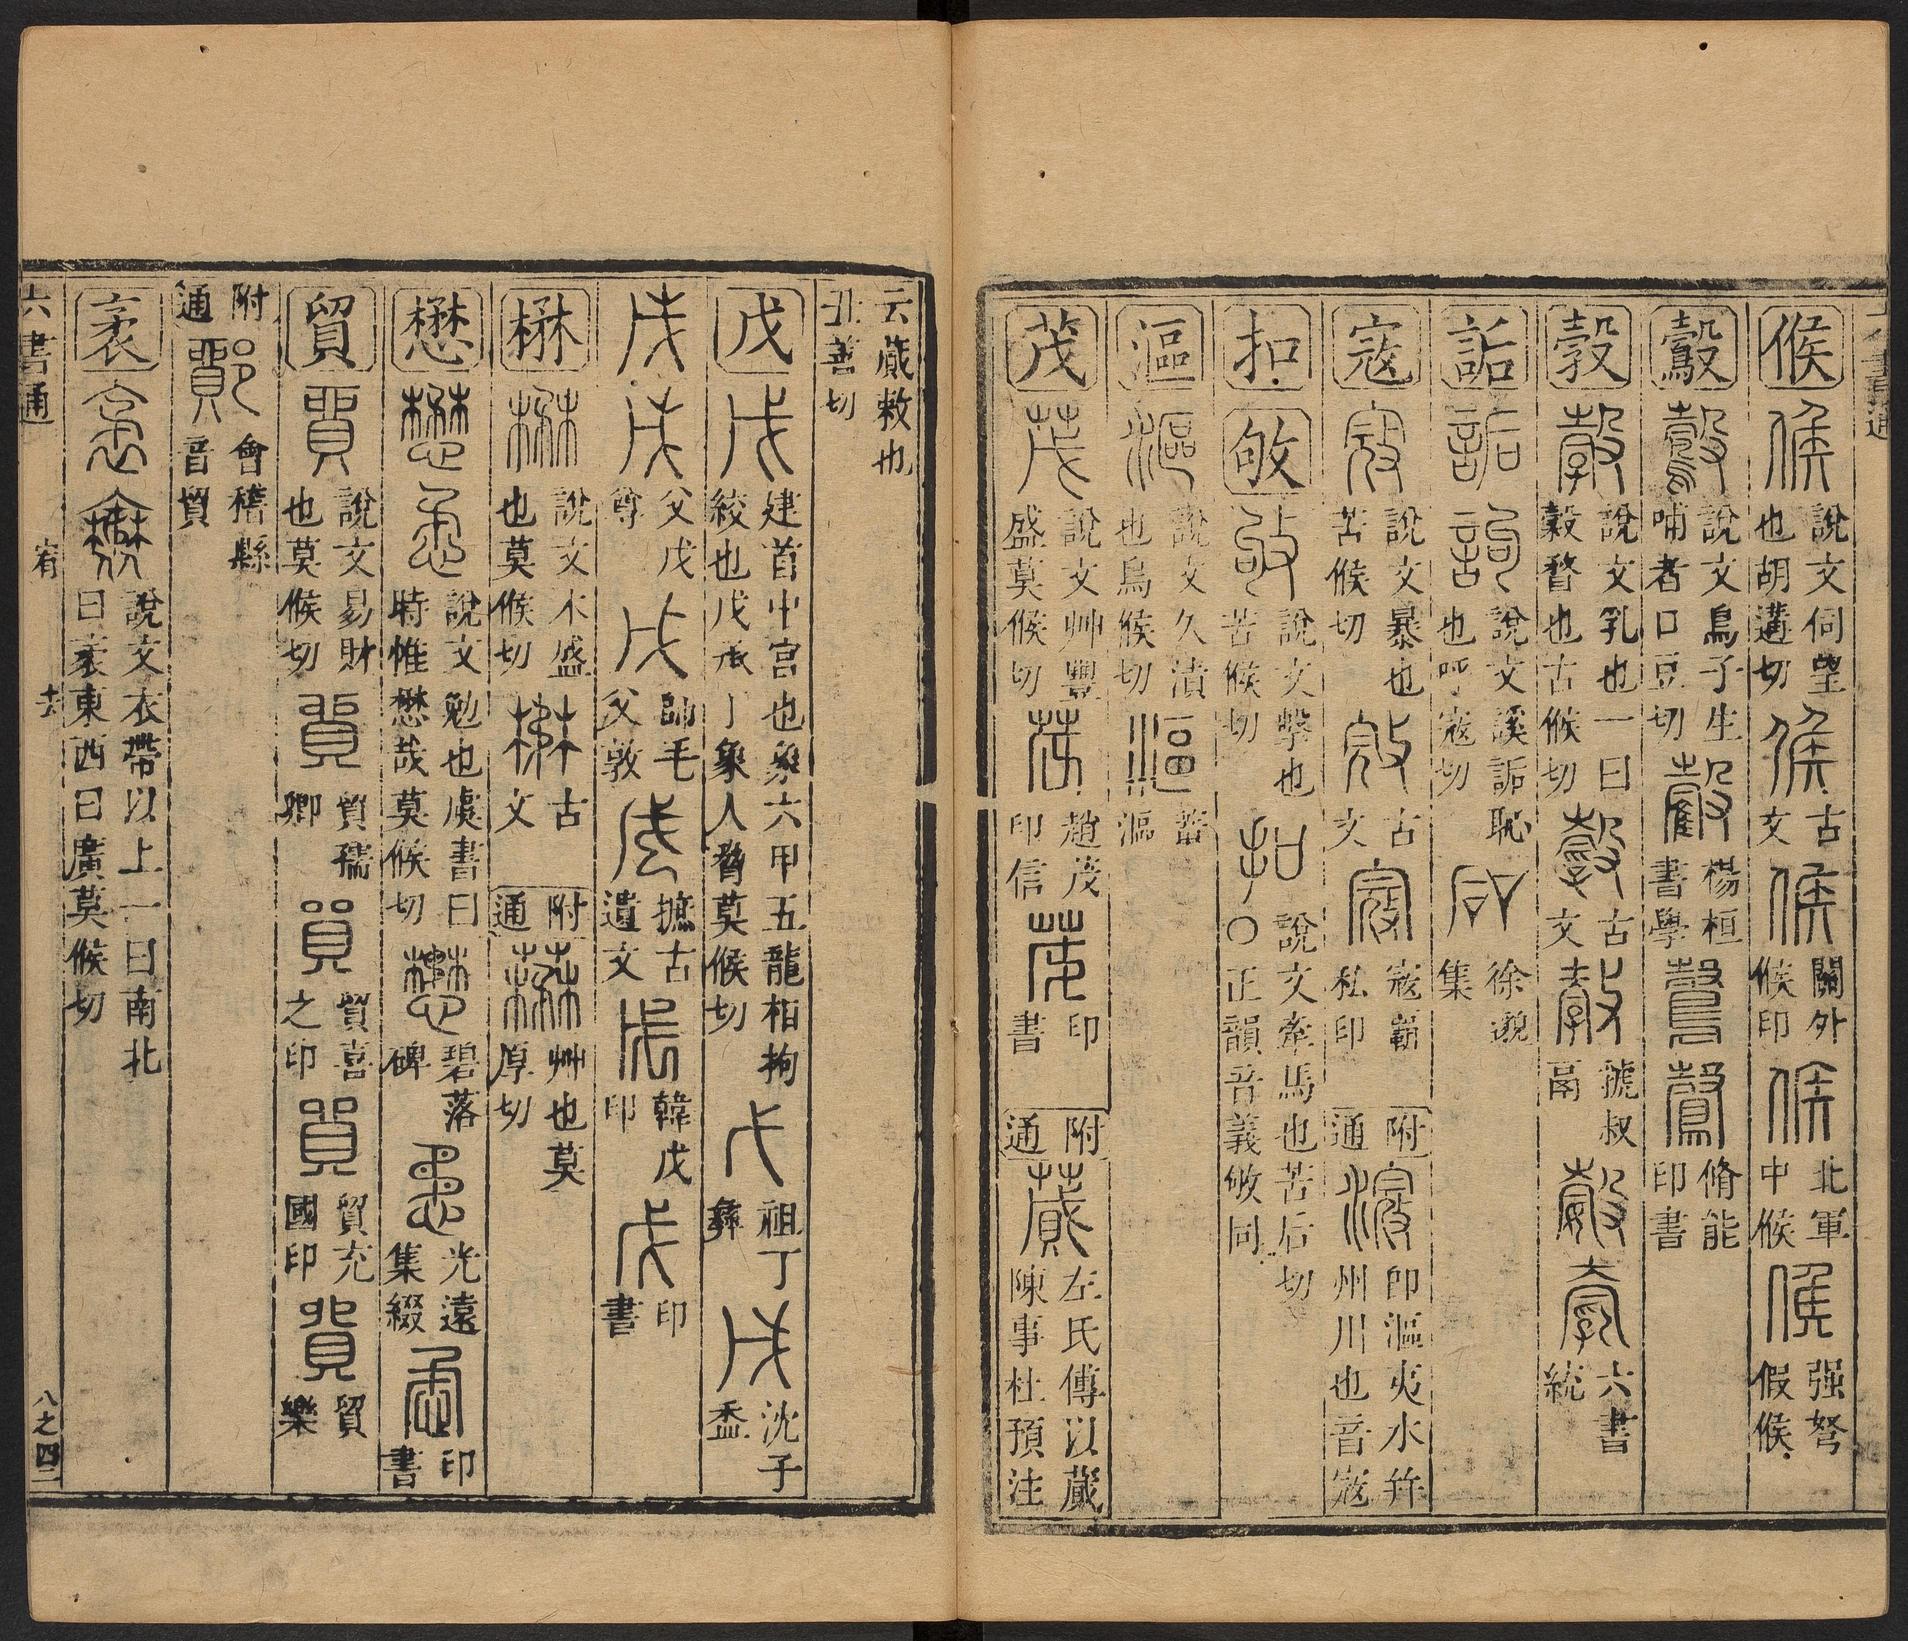 候 說文伺望也胡遘切 古文 關外候印 北軍中候 强弩假候
鷇 說文鳥子生哺者口豆切 楊桓書學 脩能印書
㝅 說文乳也一曰㝅瞀也古候切 古文 虢叔鬲 六書統
詬 說文謑詬恥也呼寇切 徐邈集
寇 說文暴也苦候切 古文 寇蘄私印 附通 卽漚夷水幷州川也音寇
扣 敂 說文擊也苦候切 說文牽馬也苦后切○正韻音義敂同
漚 說文久漬也烏候切 漚
茂 說文艸豐盛莫候切 趙茂印信 印書 附通 左氏傳以蕆陳事杜預注
云蕆敕也
丑善切
戊 建首中宮也象六甲五龍相拘絞也戊承丁象人脅莫候切 祖丁彝 沈子盉
父戊尊 師毛父敦 摭古遺文 韓戊印 印書
楙 說文木盛也莫候切 古文 附通 艸也莫厚切
懋 說文勉也虞書曰時惟懋哉莫候切 碧落碑 光遠集綴 印書
貿 說文易財也莫候切 貿孺卿 貿喜之印 貿充國印 貿樂
附通 鄮 會稽縣音貿
袤 說文衣帶以上一曰南北曰袤東西曰廣莫候切
六書通 宥 去 八之四二